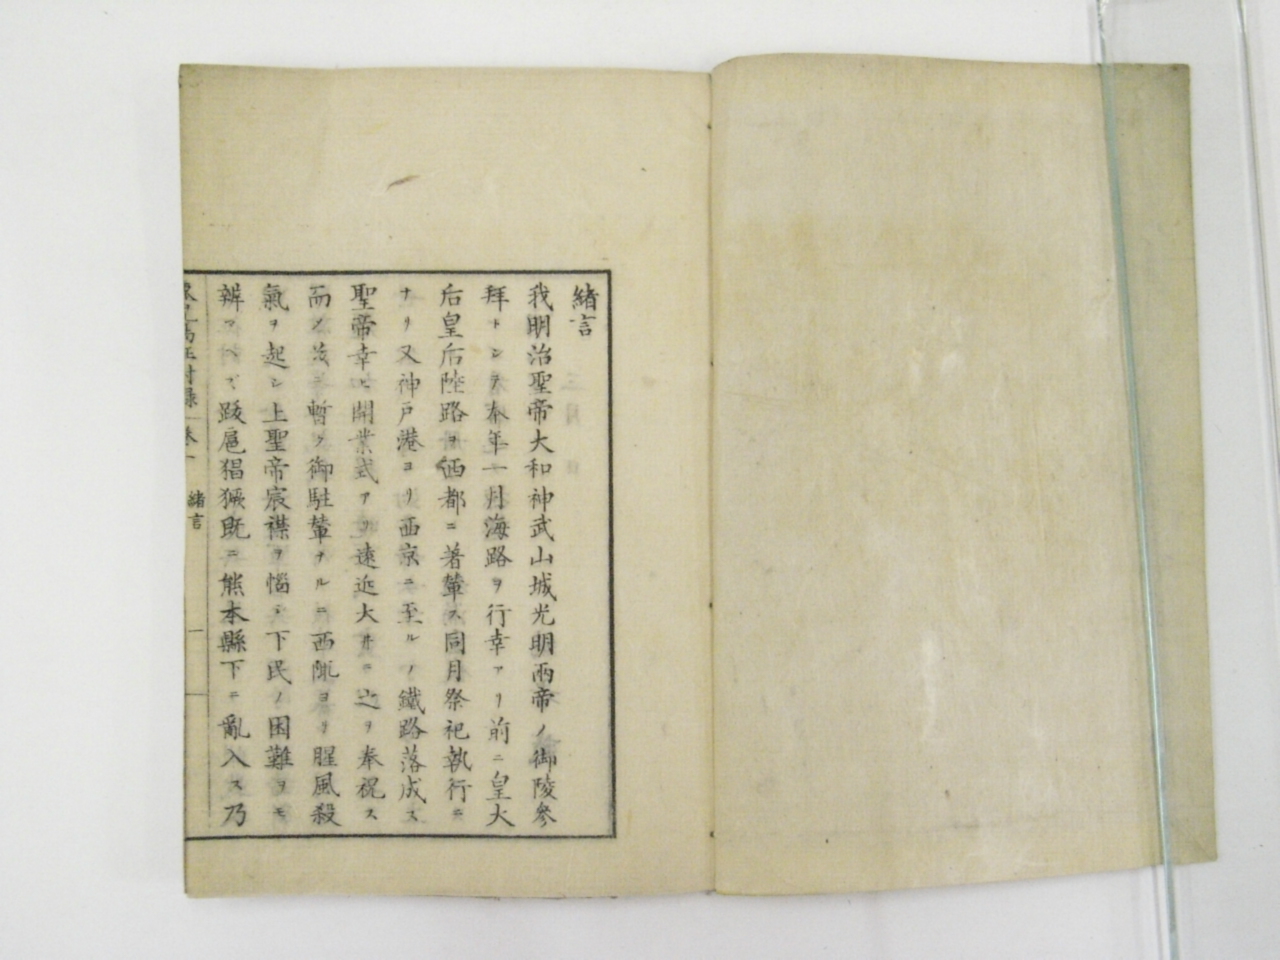 緒言
我明治聖帝大和神武山城光明両帝ノ御陵参
拜トシテ本年一月海路ヲ行幸アリ前ニ皇大
后皇后陸路ヨリ西都ニ著輦ス同月祭祀執行ニ
ナリ又神戸港ヨリ西京ニ至ルノ鐵路落成ス
聖帝幸ヒ開業式アリ遠近大ニ之ヲ奉祝ス
而ノ茲ニ暫ク御駐輦ナルニ西陬ヨリ腥風殺
氣ヲ起シ上聖帝宸襟ヲ悩シ下民ノ困難ヲモ
辨アヘズ跋扈猖獗既ニ熊本縣下ニ亂入ス乃
緒言
一